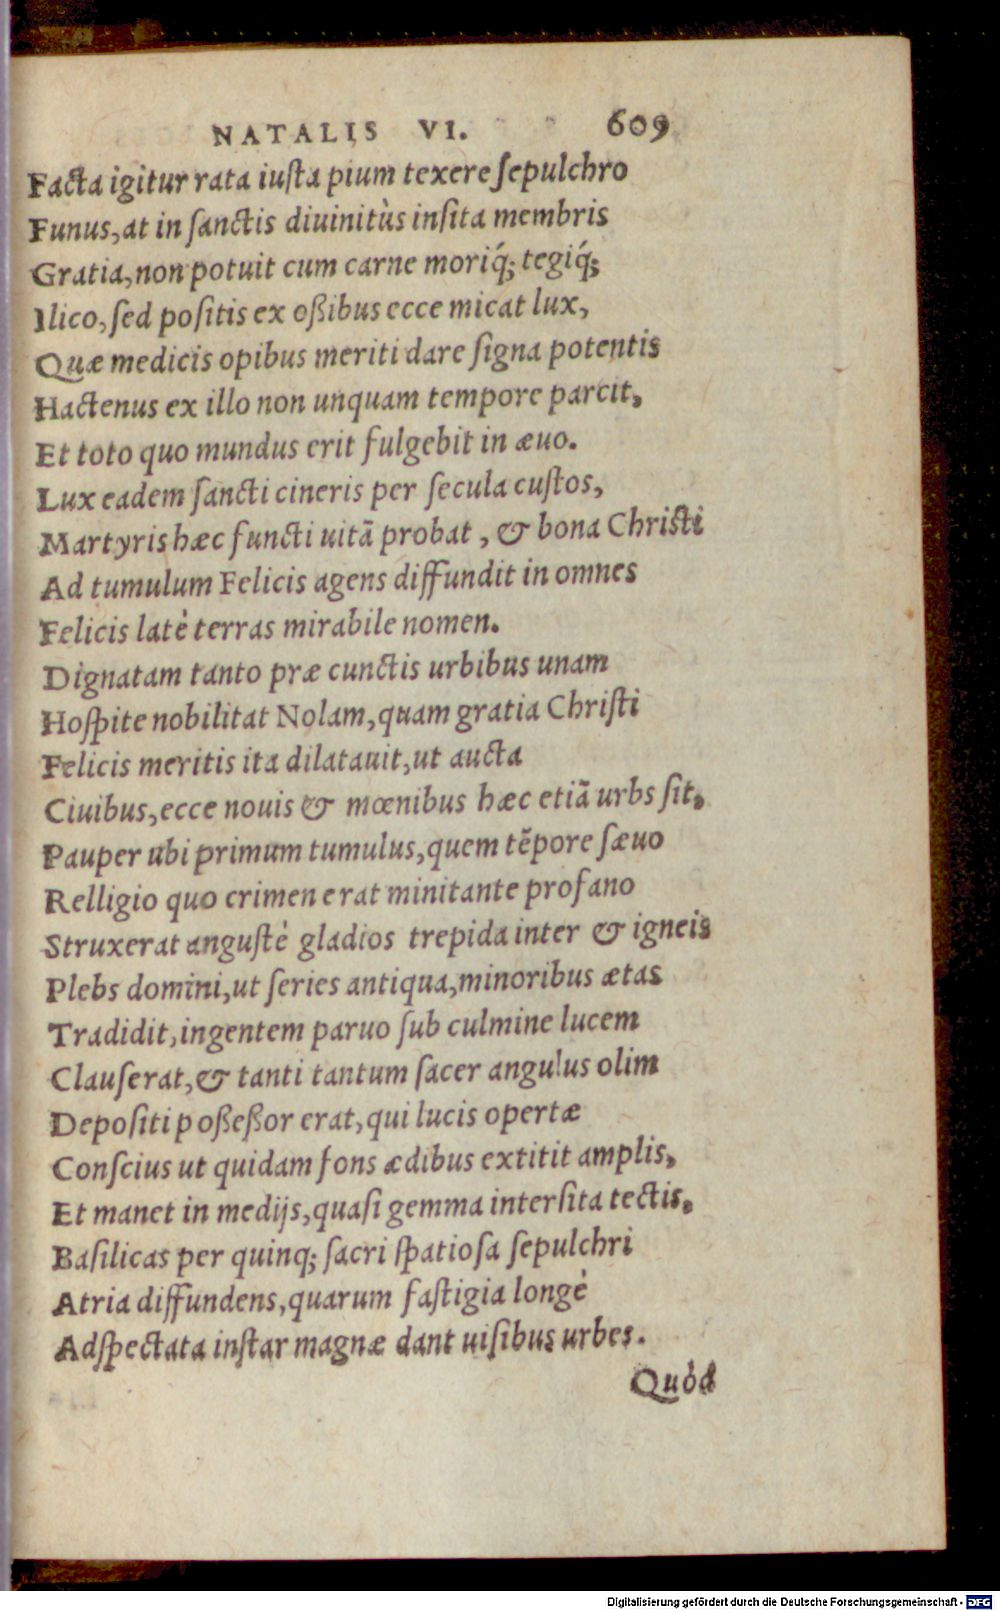 NATALIS VI. 609
Facta igitur rata iuſta pium texere ſepulchro
Funus, at in ſanctis diuinitùs inſita membris
Gratia, non potuit cum carne moriq́; tegiq́;
Ilico, ſed poſitis ex oßibus ecce micat lux,
Quæ medicis opibus meriti dare ſigna potentis
Hactenus ex illo non unquam tempore parcit,
Et toto quo mundus erit fulgebit in æuo.
Lux eadem ſancti cineris per ſecula cuſtos,
Martyris hæc functi uitā probat, & bona Chriſti
Ad tumulum Felicis agens diffundit in omnes
Felicis latè terras mirabile nomen.
Dignatam tanto præ cunctis urbibus unam
Hoſpite nobilitat Nolam, quam gratia Chriſti
Felicis meritis ita dilatauit, ut aucta
Ciuibus, ecce nouis & mœnibus hæc etiā urbs ſit,
Pauper ubi primum tumulus, quem tēpore ſæuo
Relligio quo crimen erat minitante profano
Struxerat anguſtè gladios trepida inter & igneis
Plebs domini, ut ſeries antiqua, minoribus ætas
Tradidit, ingentem paruo ſub culmine lucem
Clauſerat, & tanti tantum ſacer angulus olim
Depoſiti poßeßor erat, qui lucis opertæ
Conſcius ut quidam fons ædibus extitit amplis,
Et manet in medijs, quaſi gemma interſita tectis,
Baſilicas per quinq; ſacri ſpatioſa ſepulchri
Atria diffundens, quarum faſtigia longè
Adſpectata inſtar magnæ dant uiſibus urbes.
Quòd
Digitalisierung gefördert durch die Deutsche Forschungsgemeinschaft - DFG